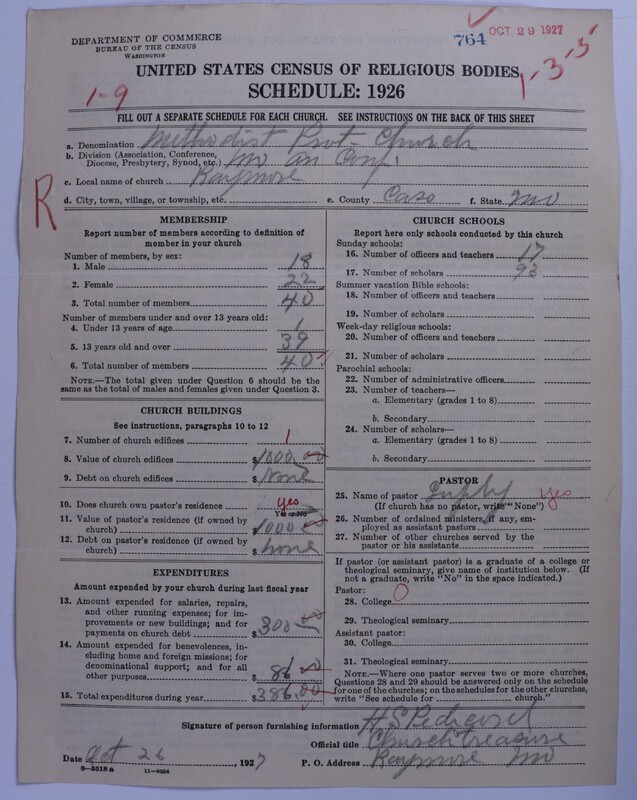 DEPARTMENT OF COMMERCE
BUREAU OF THE CENSUS
WASHINGTON
764 OCT 29 1927
UNITED STATES CENSUS OF RELIGIOUS BODIES
SCHEDULE: 1926
1-9
1-3-5
FILL OUT A SEPARATE SCHEDULE FOR EACH CHURCH. SEE INSTRUCTIONS ON THE BACK OF THIS SHEET
a. Denomination Methodist Prot- Church
b. Division (Association, Conference, Diocese, Presbytery, Synod, etc.) Mo an Conf.
c. Local name of church Raymore
d. City, town, village, or township, etc. e. County Cass f. State Mo
R
MEMBERSHIP
Report number of members according to definition of member in your church
Number of members, by sex:
1. Male 18
2. Female 22
3. Total number of members 40
Number of members under and over 13 years old:
4. Under 13 years of age 1
5. 13 years old and over 39
6. Total number of members 40
NOTE.—The total given under Question 6 should be the same as the total of males and females given under Question 3.
CHURCH BUILDINGS
See instructions, paragraphs 10 to 12
7. Number of church edifices 1
8. Value of church edifices $1000.00
9. Debt on church edifices $None
10. Does church own pastor's residence? yes
Yes or No
11. Value of pastor's residence (if owned by church) $1000.00
12. Debt on pastor's residence (if owned by church) $none
EXPENDITURES
Amount expended by your church during last fiscal year
13. Amount expended for salaries, repairs, and other running expenses; for improvements or new buildings; and for payments on church debt $300.00
14. Amount expended for benevolences, including home and foreign missions; for denominational support; and for all other purposes $86.00
15. Total expenditures during year $386.00
CHURCH SCHOOLS
Report here only schools conducted by this church
Sunday schools:
16. Number of officers and teachers 17
17. Number of scholars 93
Summer vacation Bible schools:
18. Number of officers and teachers
19. Number of scholars
Week-day religious schools:
20. Number of officers and teachers
21. Number of scholars
Parochial schools:
22. Number of administrative officers
23. Number of teachers—
a. Elementary (grades 1 to 8)
b. Secondary
24. Number of scholars—
a. Elementary (grades 1 to 8)
b. Secondary
PASTOR
25. Name of pastor Supply yes
(If church has no pastor, write "None")
26. Number of ordained ministers, if any, employed as assistant pastors
27. Number of other churches served by the pastor or his assistants
If pastor (or assistant pastor) is a graduate of a college or theological seminary, give name of institution below. (If not a graduate, write "No" in the space indicated.)
Pastor:
28. College O
29. Theological seminary
Assistant pastor:
30. College
31. Theological seminary
NOTE.—Where one pastor serves two or more churches, Questions 28 and 29 should be answered only on the schedule for one of the churches; on the schedules for the other churches, write "See schedule for church."
Signature of person furnishing information H S
Official title Church treasure
Date Oct 26, 1927 P. O. Address Raymore Mo
8-5518 a